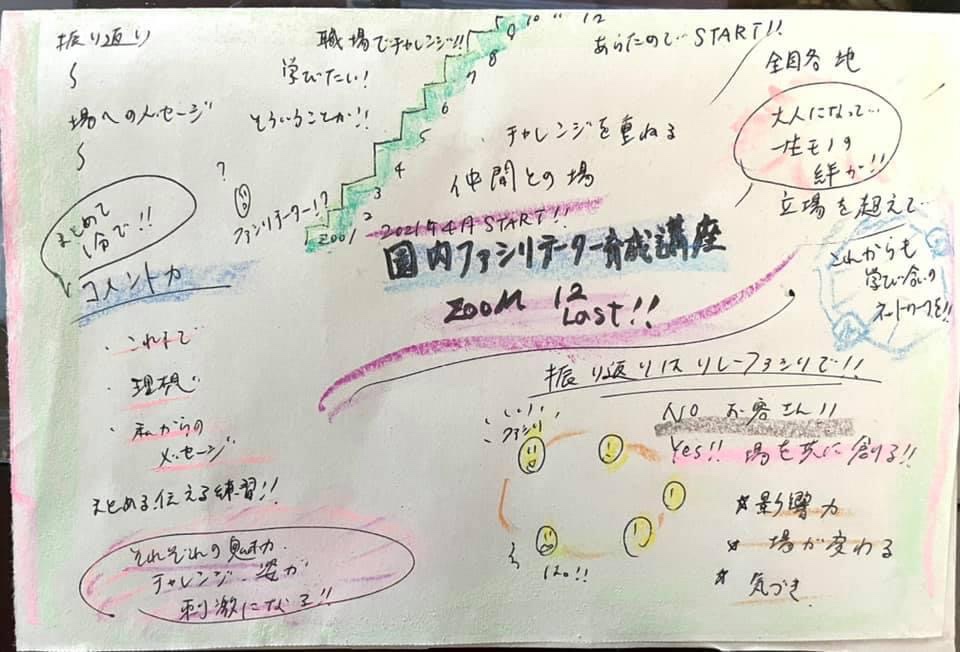 振り返り
場へのメッセージ
まとめて
1分で!!
コメント力
・これまで
・理想
・私からの
メッセージ
まとめる伝える練習!!
それぞれの魅力
チャレンジ姿が
刺激になる!!
職場でチャレンジ!!
学びたい!
どういうことか!!
?
ファシリテーター!?
1 2 3 4 5 6 7 8 9 10 11 12
ZOOM
チャレンジを重ねる
仲間との場
2021年4月START!!
国内ファシリテーター育成講座
ZOOM 12
Last!!
あらためてSTART!!
全国各地
大人になって…
一生モノの
絆が!!
立場を超えて…
これからも
学び合いの
ネットワークを!!
振り返りはリレーファシリで!!
ファシリ
NO お客さん!!
Yes!! 場を共に創る!!
★影響力
★場が変わる
★気づき